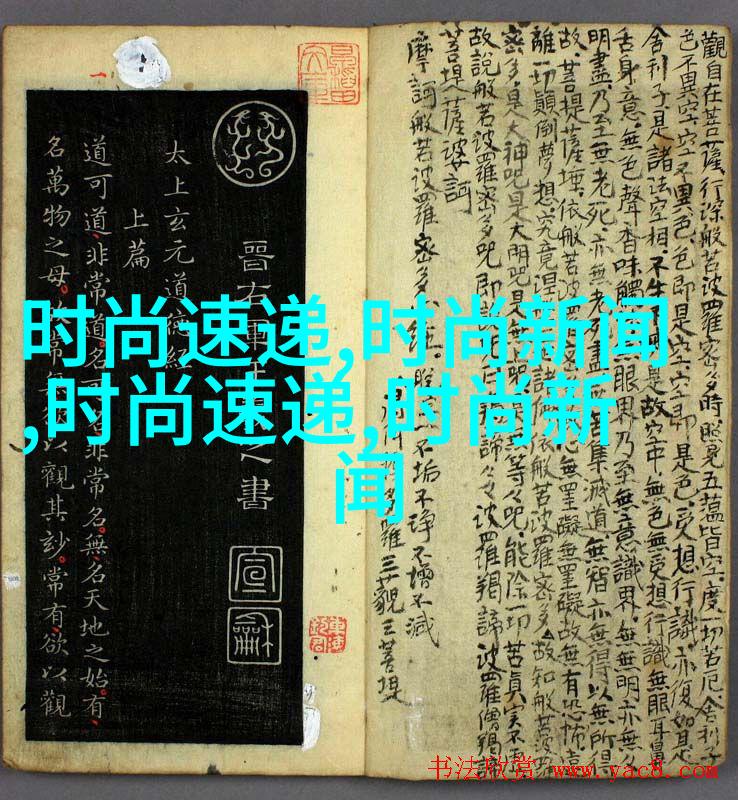 時尚速递,时尚新闻
,时尚速递,时尚新
闻
觀自在菩薩,行深般若波羅密多時照見五蘊皆空,度一切苦厄舍利子
色不異空,空不異色,色即是空空即是色,受想行識亦復如是
舍利子是諸法空相,不生不是故空中無色無受想行識無眼耳鼻
舌身意,無色聲香味觸無眼界乃至無意識界,無無明亦無
明盡,乃至無老死,亦無老死盡集滅道,無智亦無得以無所得
故,菩提薩埵,依般若波羅心無罣礙無罣礙故無有恐怖遠
離一切顛倒夢想究竟諸依般若波羅密多,故知般若波
密多是大神呪是大明呪是無呪無等々呪,能除一切苦真實不
故說般若波羅密多呪即說諦々々波羅揭諦波羅僧揭諦
菩提薩婆訶
摩訶般若波羅密多
不垢不淨不增不減
三藐三菩提
晉右軍之書
宣和
太上玄元道德經
上篇
道可道,非常道。名可非常名。無,名天地之始。有,
名萬物之母。常以觀其妙。常有,欲以觀
书法欣赏 www.yac8.com